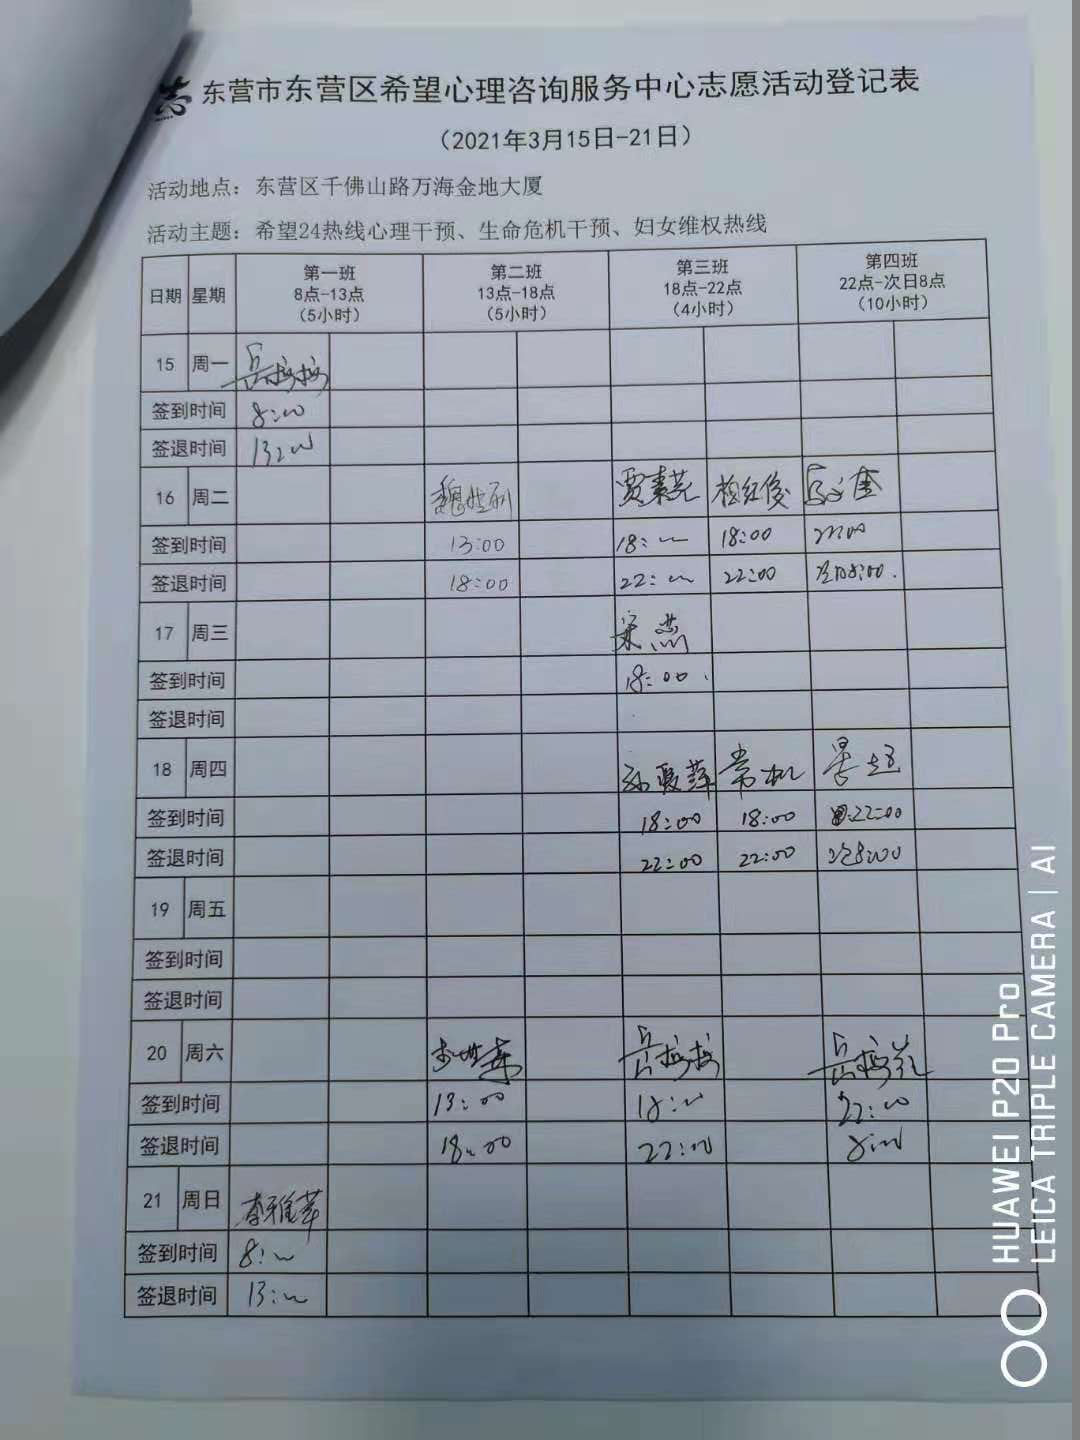 志 东营市东营区希望心理咨询服务中心志愿活动登记表
（2021年3月15日-21日）
活动地点：东营区千佛山路万海金地大厦
活动主题：希望24热线心理干预、生命危机干预、妇女维权热线
日期 星期 第一班 8点-13点 （5小时） 第二班 13点-18点 （5小时） 第三班 18点-22点 （4小时） 第四班 22点-次日8点 （10小时）
15 周一
签到时间 8:00
签退时间 13:00
16 周二 贾素芫
签到时间 13:00 18:00 18:00 22:00
签退时间 18:00 22:00 22:00 次日8:00.
17 周三 宋燕
签到时间 18:00.
签退时间
18 周四
签到时间 18:00 18:00 22:00
签退时间 22:00 22:00 次8:00
19 周五
签到时间
签退时间
20 周六
签到时间 13:00 18:00 22:00
签退时间 18:00 22:00 8:00
21 周日 李雅苹
签到时间 8:00
签退时间 13:00
HUAWEI P20 Pro
LEICA TRIPLE CAMERA | AI